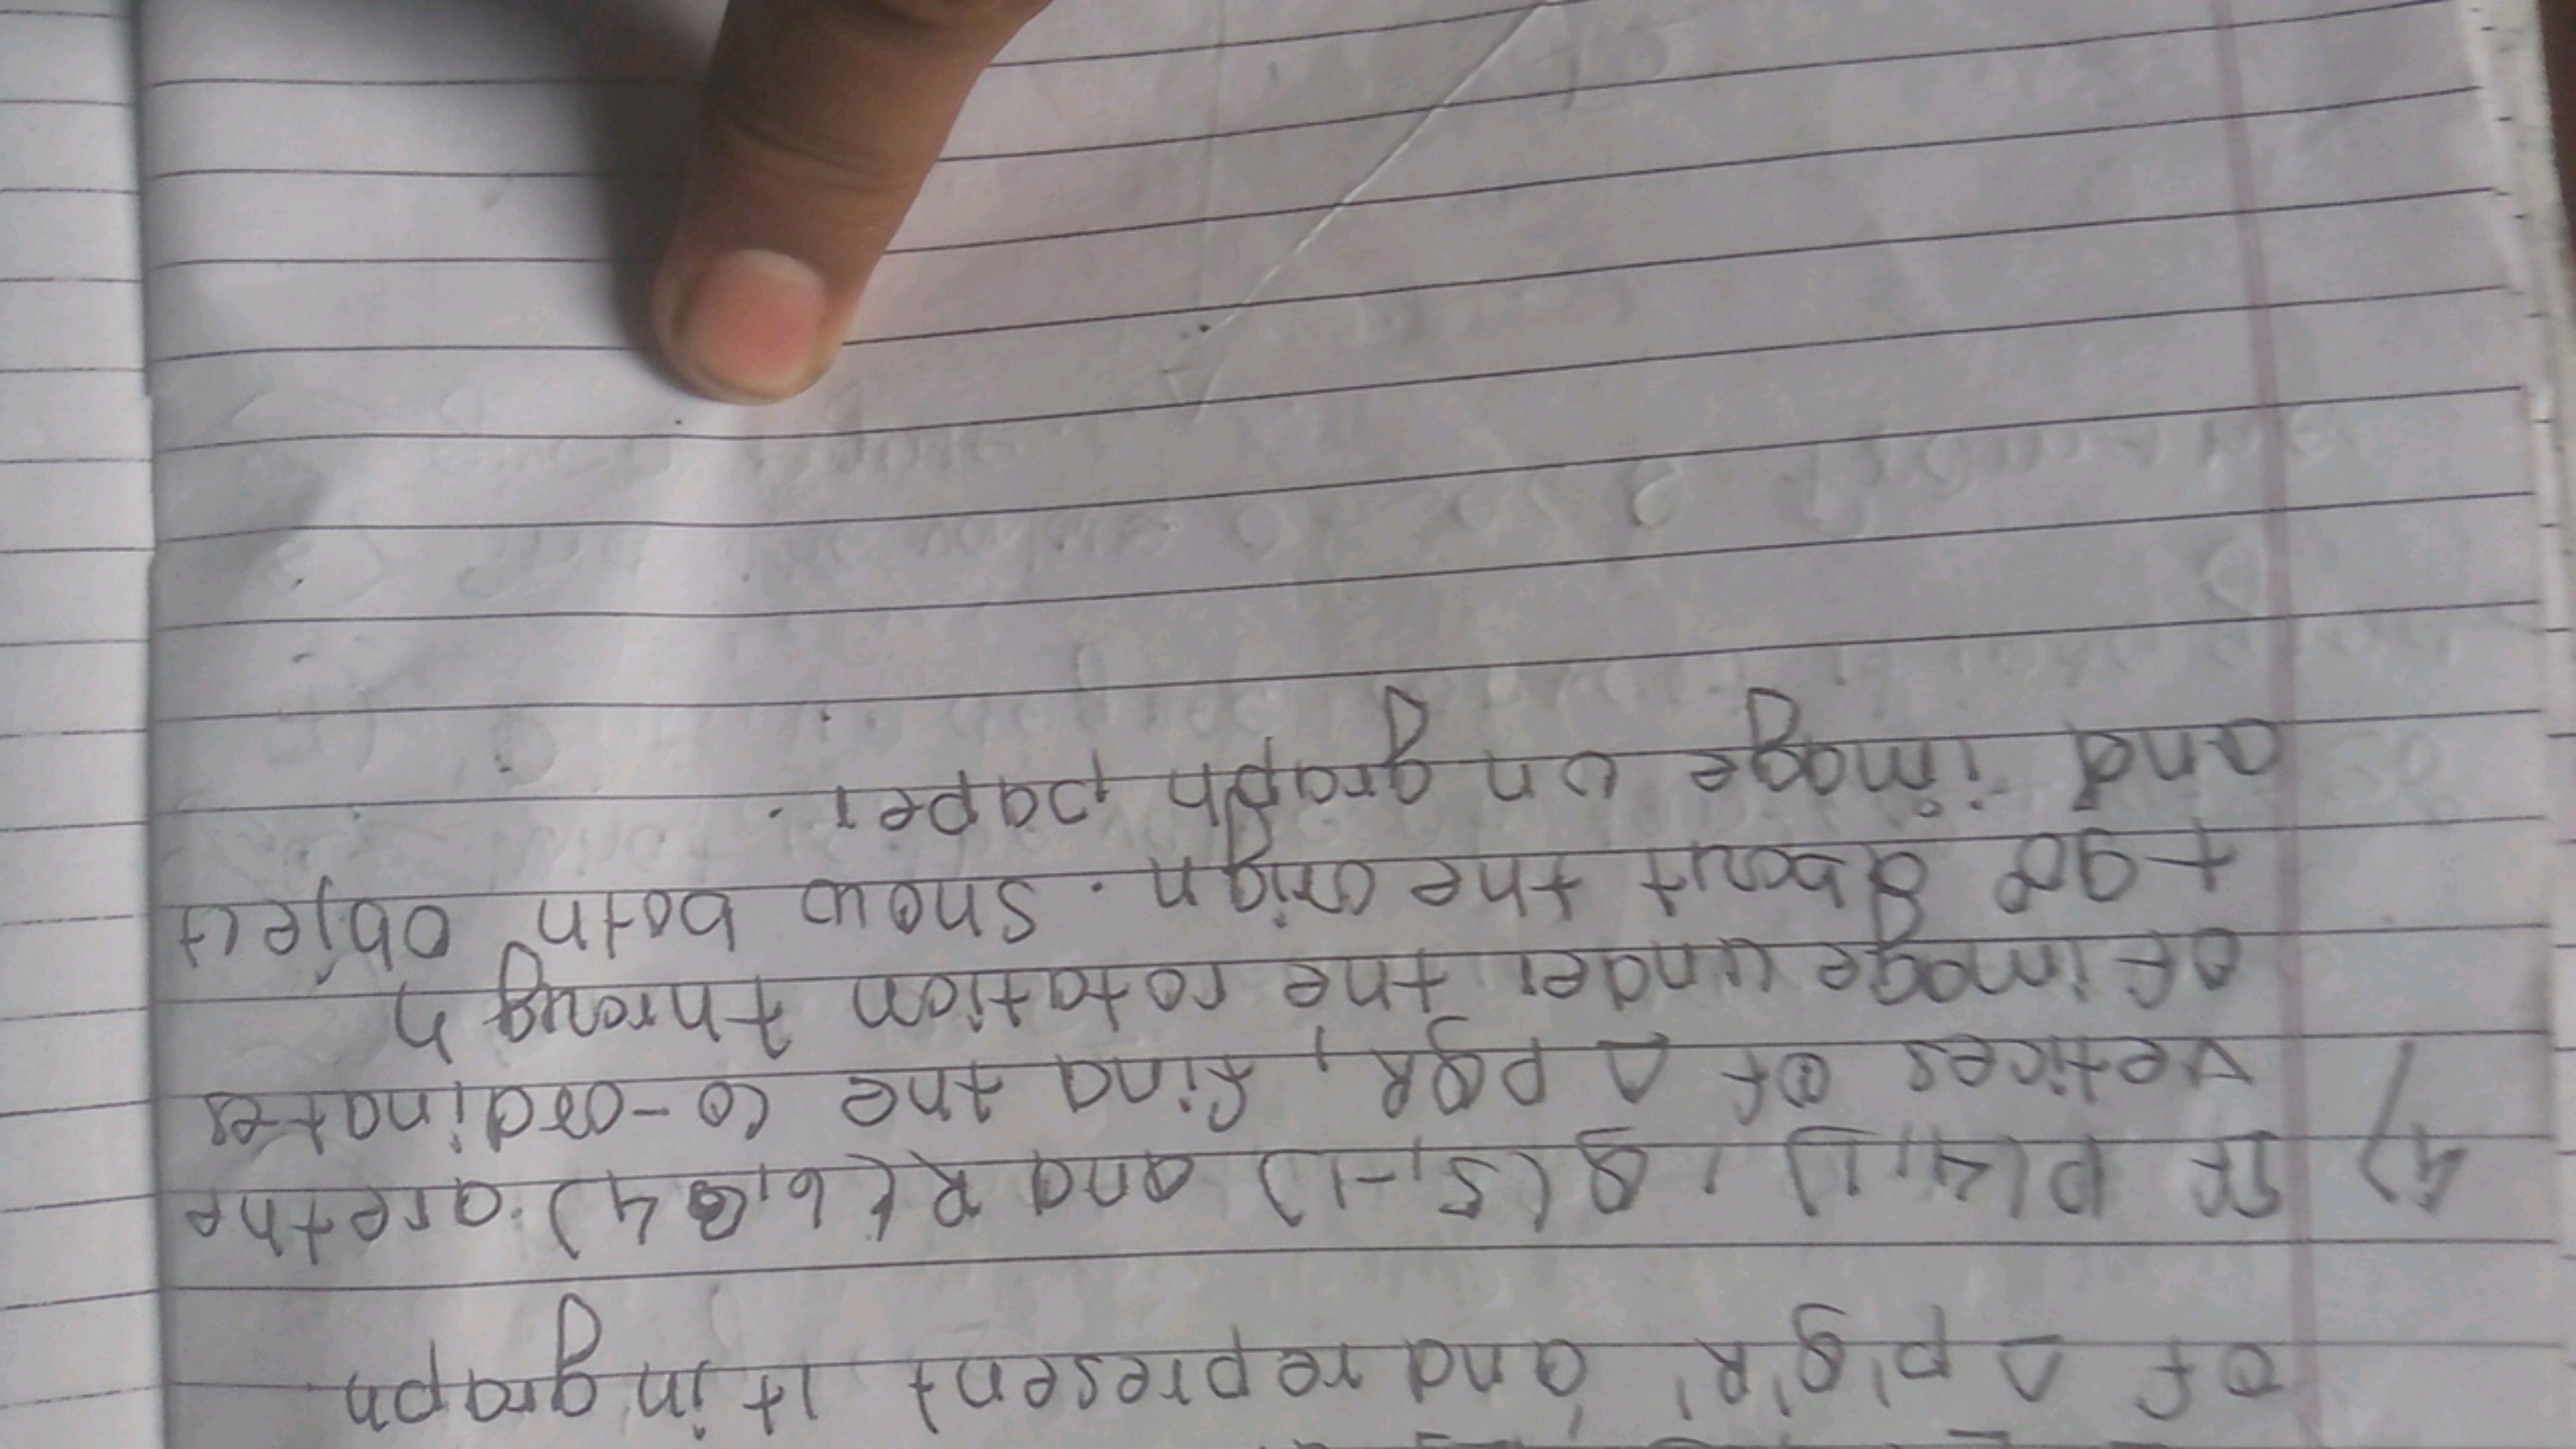 of △ P'Q'R' and represent it in graph
4) If P(4,1), Q(5,-1) and R(6,4). are the
vetices of △ PQR, find the co-ordinates
of image under the rotation through
+90° about the origin. Show both object
and image on graph paper.